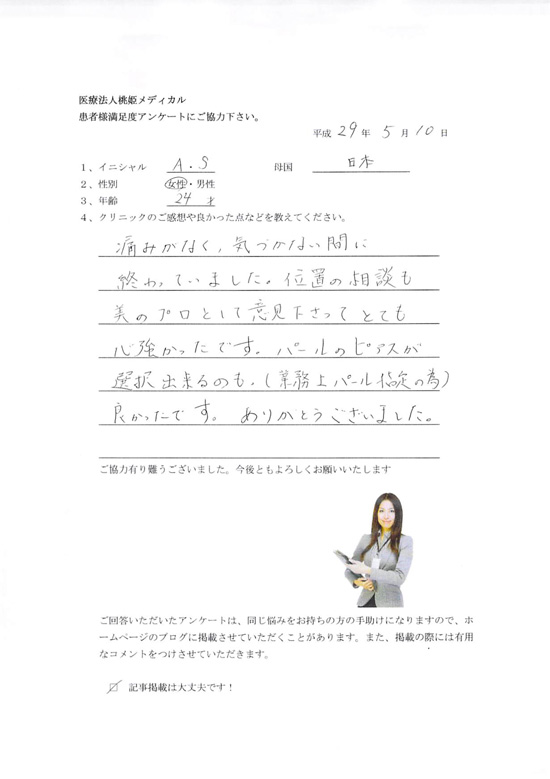 医療法人桃姫メディカル
患者様満足度アンケートにご協力下さい。
平成 29 年 5 月 10 日
1、イニシャル A.S 母国 日本
2、性別 女性・男性
3、年齢 24 才
4、クリニックのご感想や良かった点などを教えてください。
痛みがなく、気づかない間に
終わっていました。位置の相談も
美のプロとして意見下さってとても
心強かったです。パールのピアスが
選択出来るのも、(業務上パール指定の為)
良かったです。 ありがとうございました。
ご協力有り難うございました。今後ともよろしくお願いいたします
ご回答いただいたアンケートは、同じ悩みをお持ちの方の手助けになりますので、ホ
ームページのブログに掲載させていただくことがあります。また、掲載の際には有用
なコメントをつけさせていただきます。
☑ 記事掲載は大丈夫です！